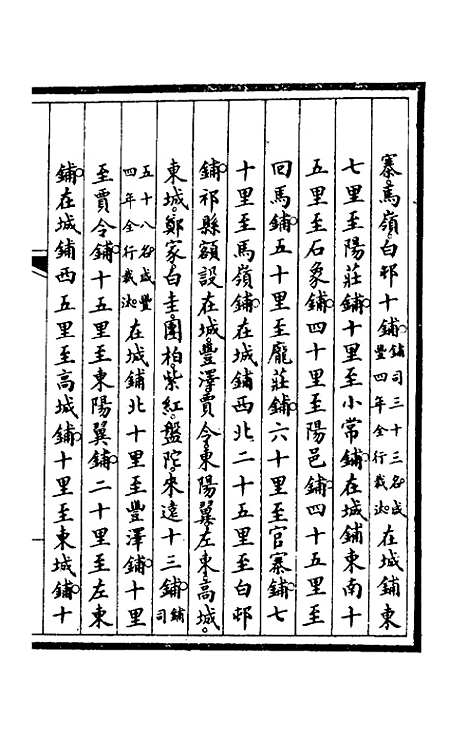 寨。馬嶺白邨十鋪。鋪司三十三名咸豐四年全行裁汰在城鋪東
七里至陽莊鋪。十里至小常鋪。在城鋪東南十
五里至石象鋪。四十里至陽邑鋪。四十五里至
回馬鋪。五十里至龐莊鋪。六十里至官寨鋪。七
十里至馬嶺鋪。在城鋪西北二十五里至白邨
鋪。祁縣額設在城。豐澤賈令。東陽翼左東。高城。
東城。鄭家白圭。團柏紫紅。盤陀。來遠十三鋪。鋪司
五十八名咸豐四年全行裁汰在城鋪北十里至豐澤鋪。十里
至賈令鋪。十五里至東陽翼鋪。二十里至左東
鋪。在城鋪西五里至高城鋪。十里至東城鋪。十